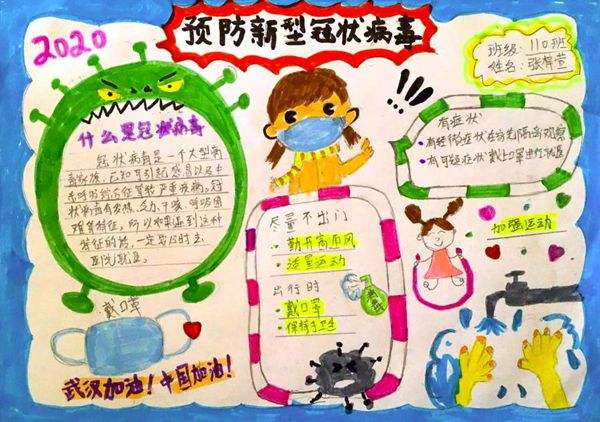 预防新型冠状病毒
2020
班级:110班
姓名:张
什么是冠状病毒
冠状病毒是一个大型病
毒家族,已知可引起感冒以及中
东呼吸综合征等较严重疾病。冠
状病毒有发烧、乏力、干咳、呼吸困
难等特征,所以如果遇到这种
特征的话,一定要及时去
医院就医。
有症状
•有轻微症状在家先隔离观察
•有可疑症状戴上口罩
尽量不出门
•勤开窗通风
•适量运动
出行时
•戴口罩
•保持手卫生
加强运动
戴口罩
武汉加油!中国加油!